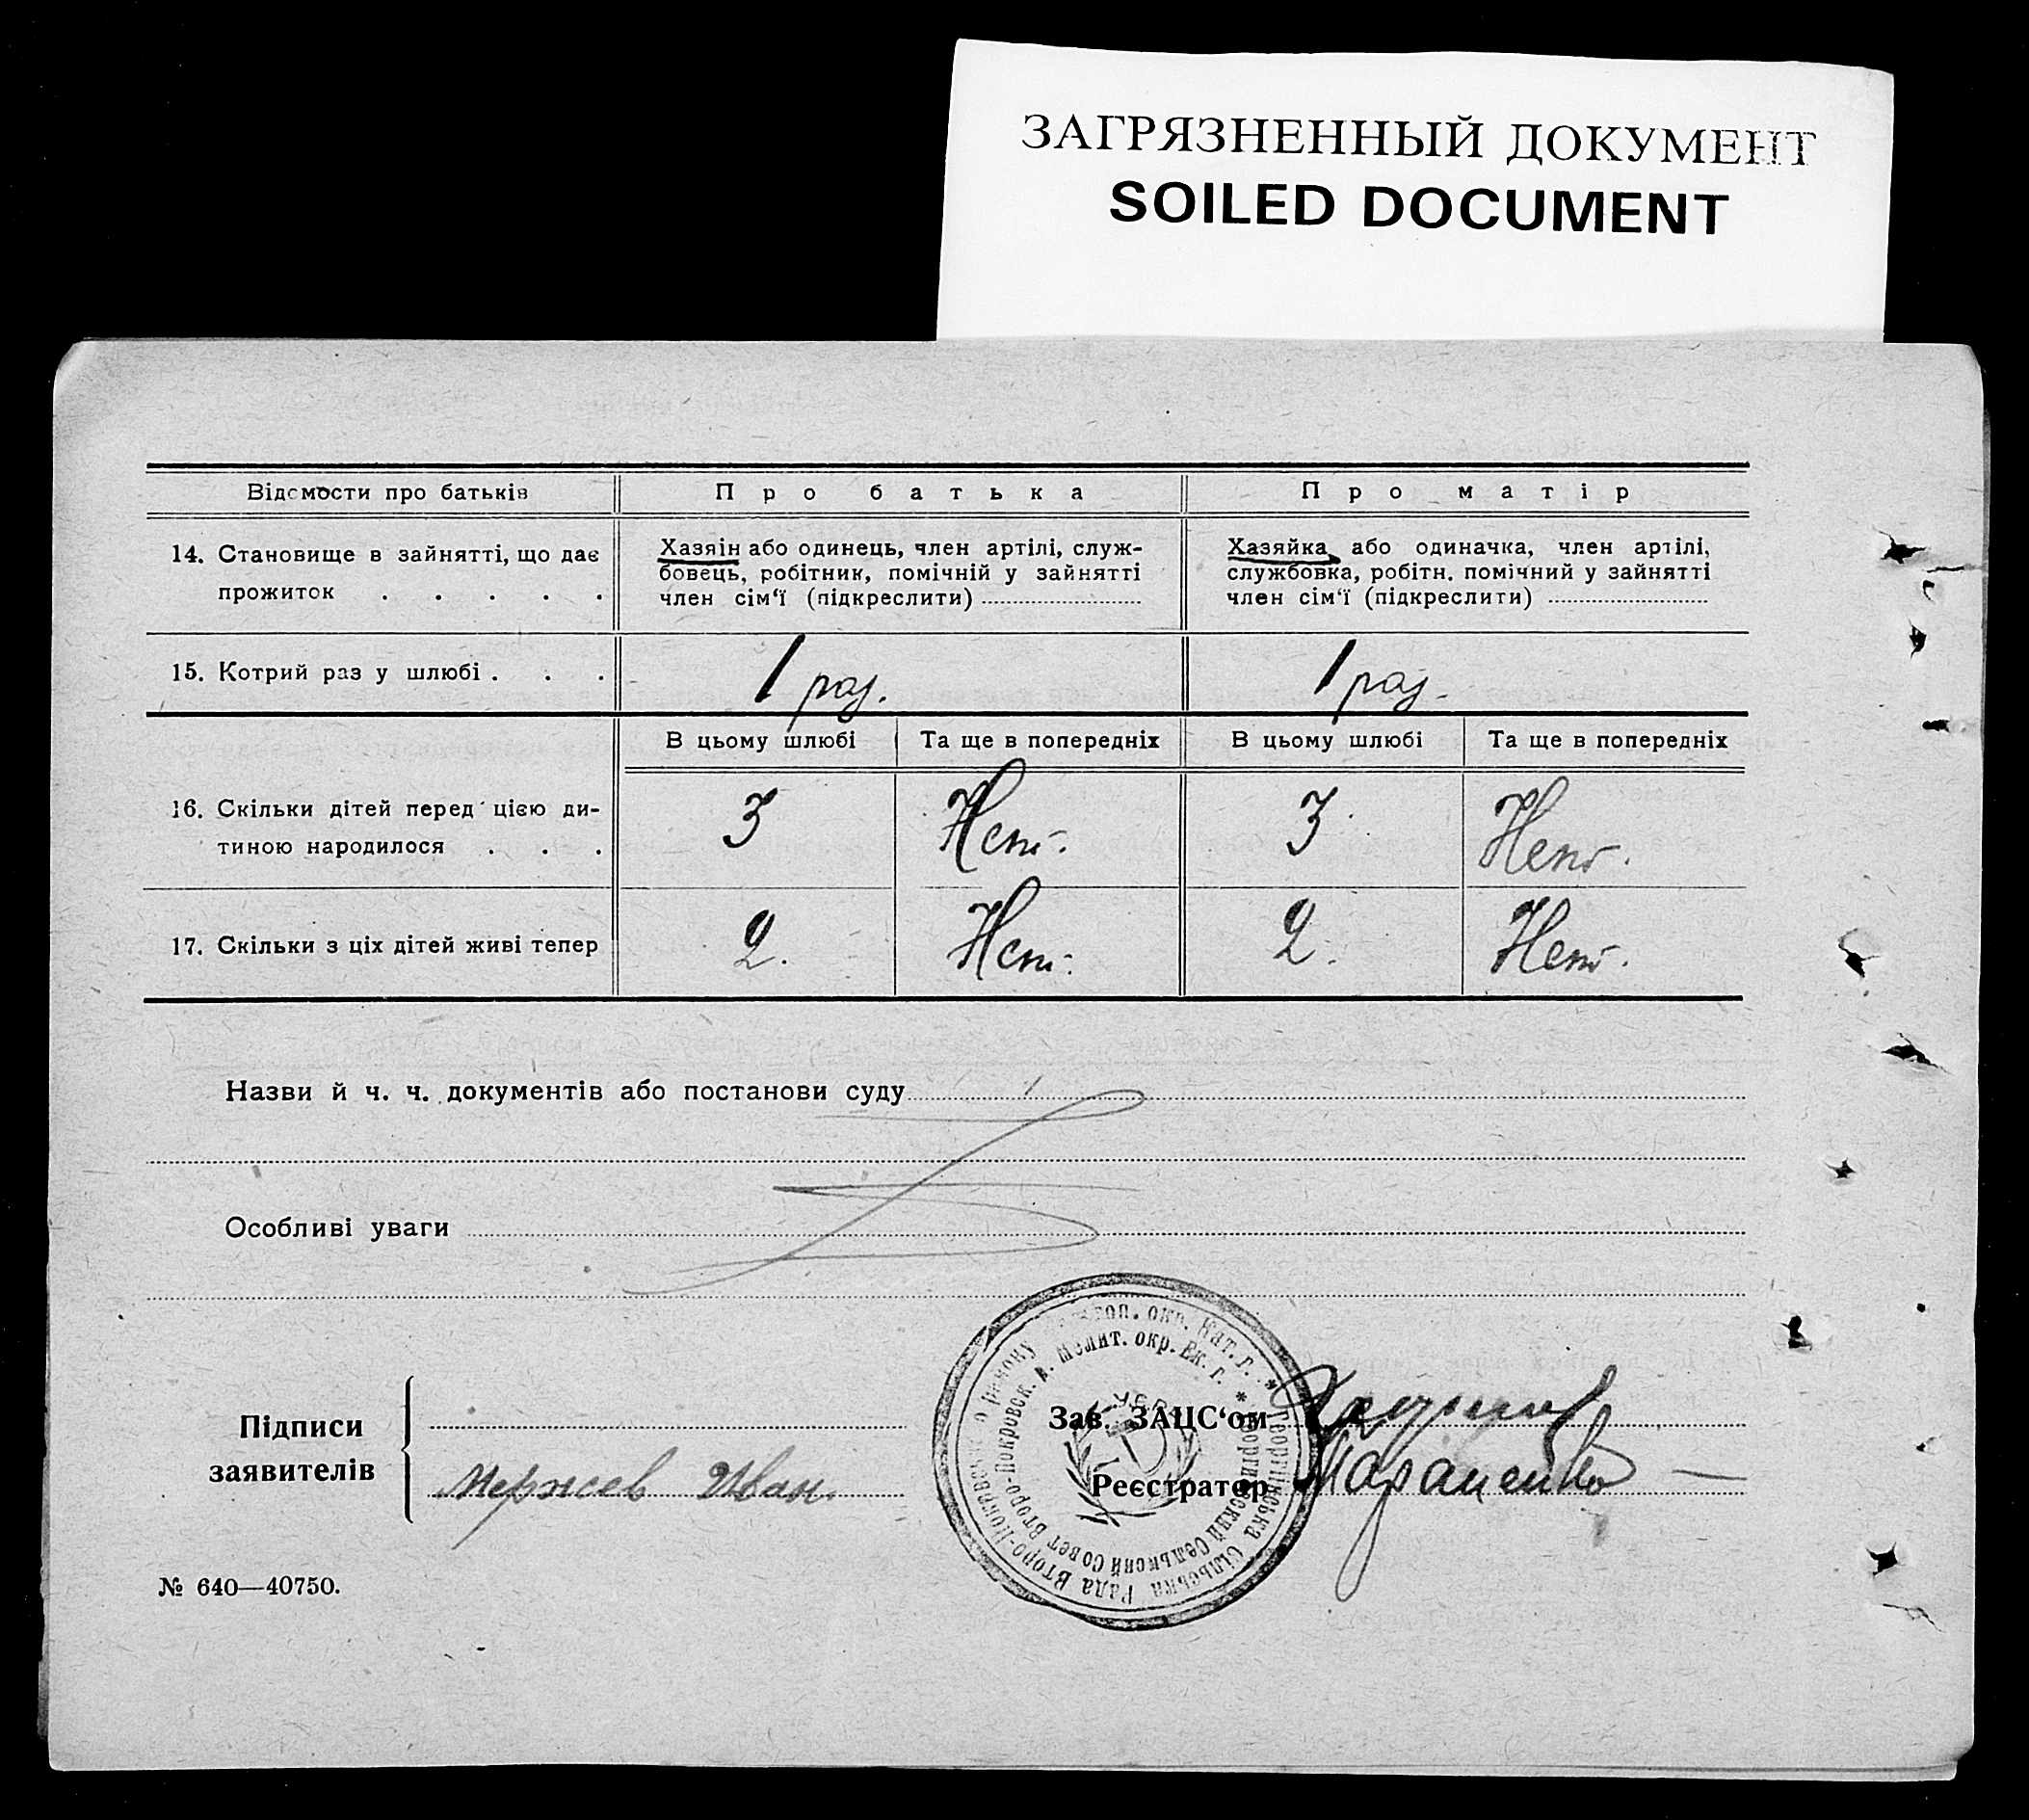 ЗАГРЯЗНЕННЫЙ ДОКУМЕНТ
SOILED DOCUMENT
Відомости про батьків
Про батька
Про матір
14. Становище в зайнятті, що дає
прожиток . . . . .
Хазяїн або одинець, член артілі, служ-
бовець, робітник, помічній у зайнятті
член сім‘ї (підкреслити)
Хазяйка або одиначка, член артілі,
службовка, робітн. помічний у зайнятті
член сім‘ї (підкреслити)
15. Котрий раз у шлюбі . . .
1 раз.
1 раз.
В цьому шлюбі
Та ще в попередніх
В цьому шлюбі
Та ще в попередніх
16. Скільки дітей перед цією ди-
тиною народилося . . .
3
Нет.
3
Нет.
17. Скільки з ціх дітей живі тепер
2.
Нет.
2.
Нет.
Назви й ч. ч. документів або постанови суду
Особливі уваги
Підписи
заявителів
Иван.
Зав. ЗАЦС‘ом
Реєстратор
Георгіївська Сільська Рада Второ-Покровського району окр. Кат. г.
Сельский Совет Второ-Покровск. Мелит. окр. Ек. г.
УСРР
№ 640—40750.